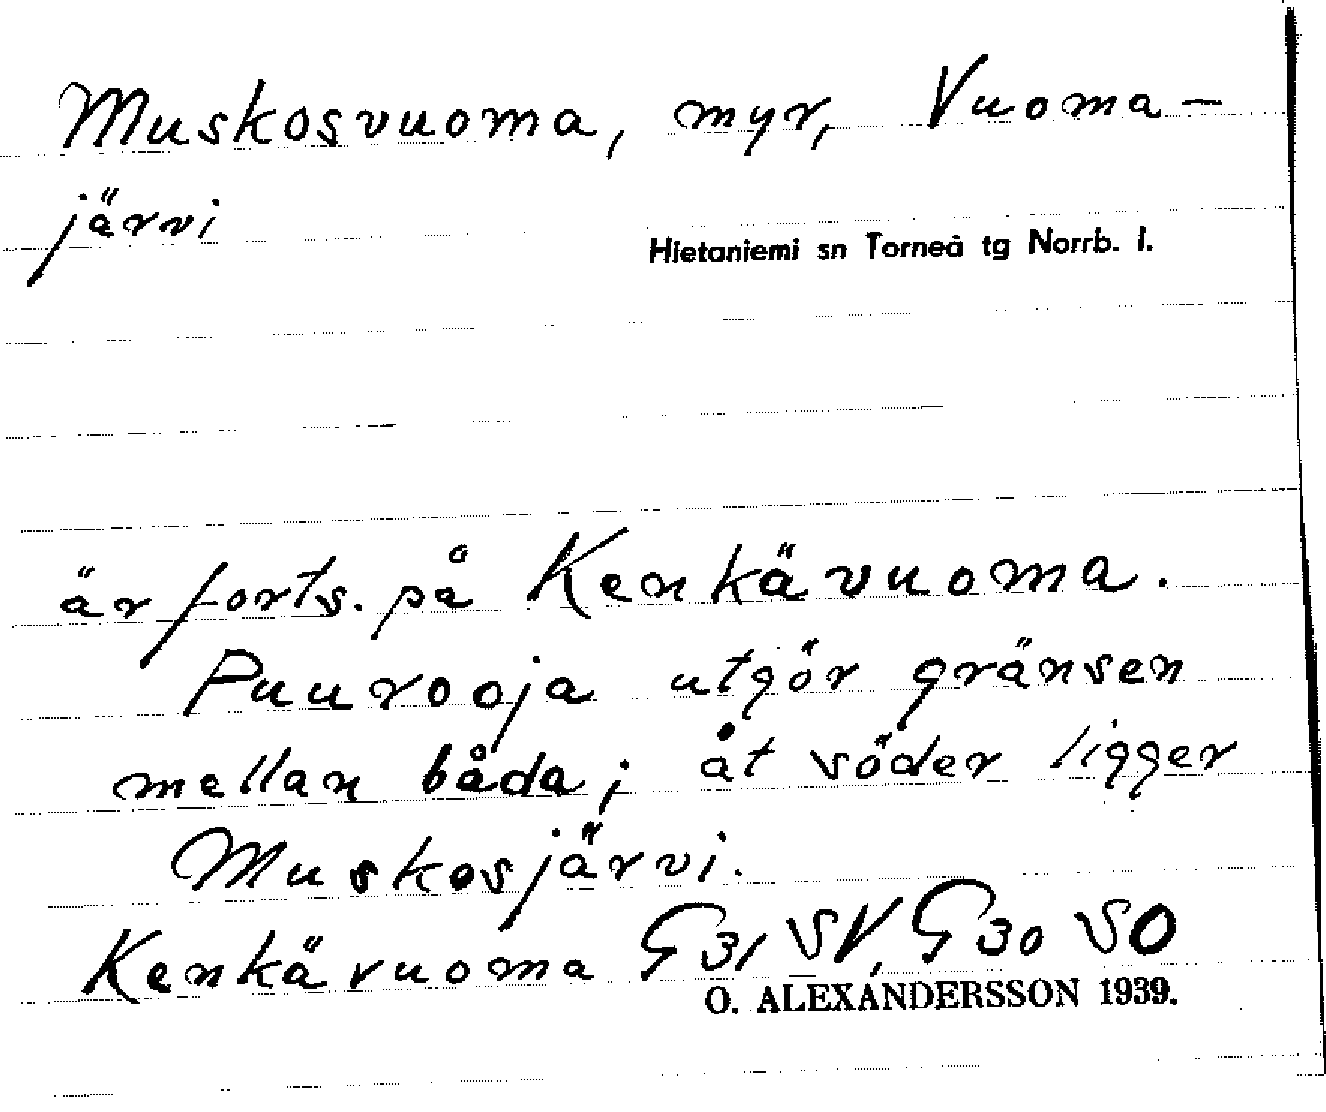 Muskosvuoma, myr, Vuoma-
järvi
Hietaniemi sn Torneå tg Norrb. l.
är forts. på Kenkävuoma.
Puurooja utgör gränsen
mellan båda; åt söder ligger
Muskosjärvi.
Kenkävuoma G31 SV, G30 SO
O. ALEXANDERSSON 1939.